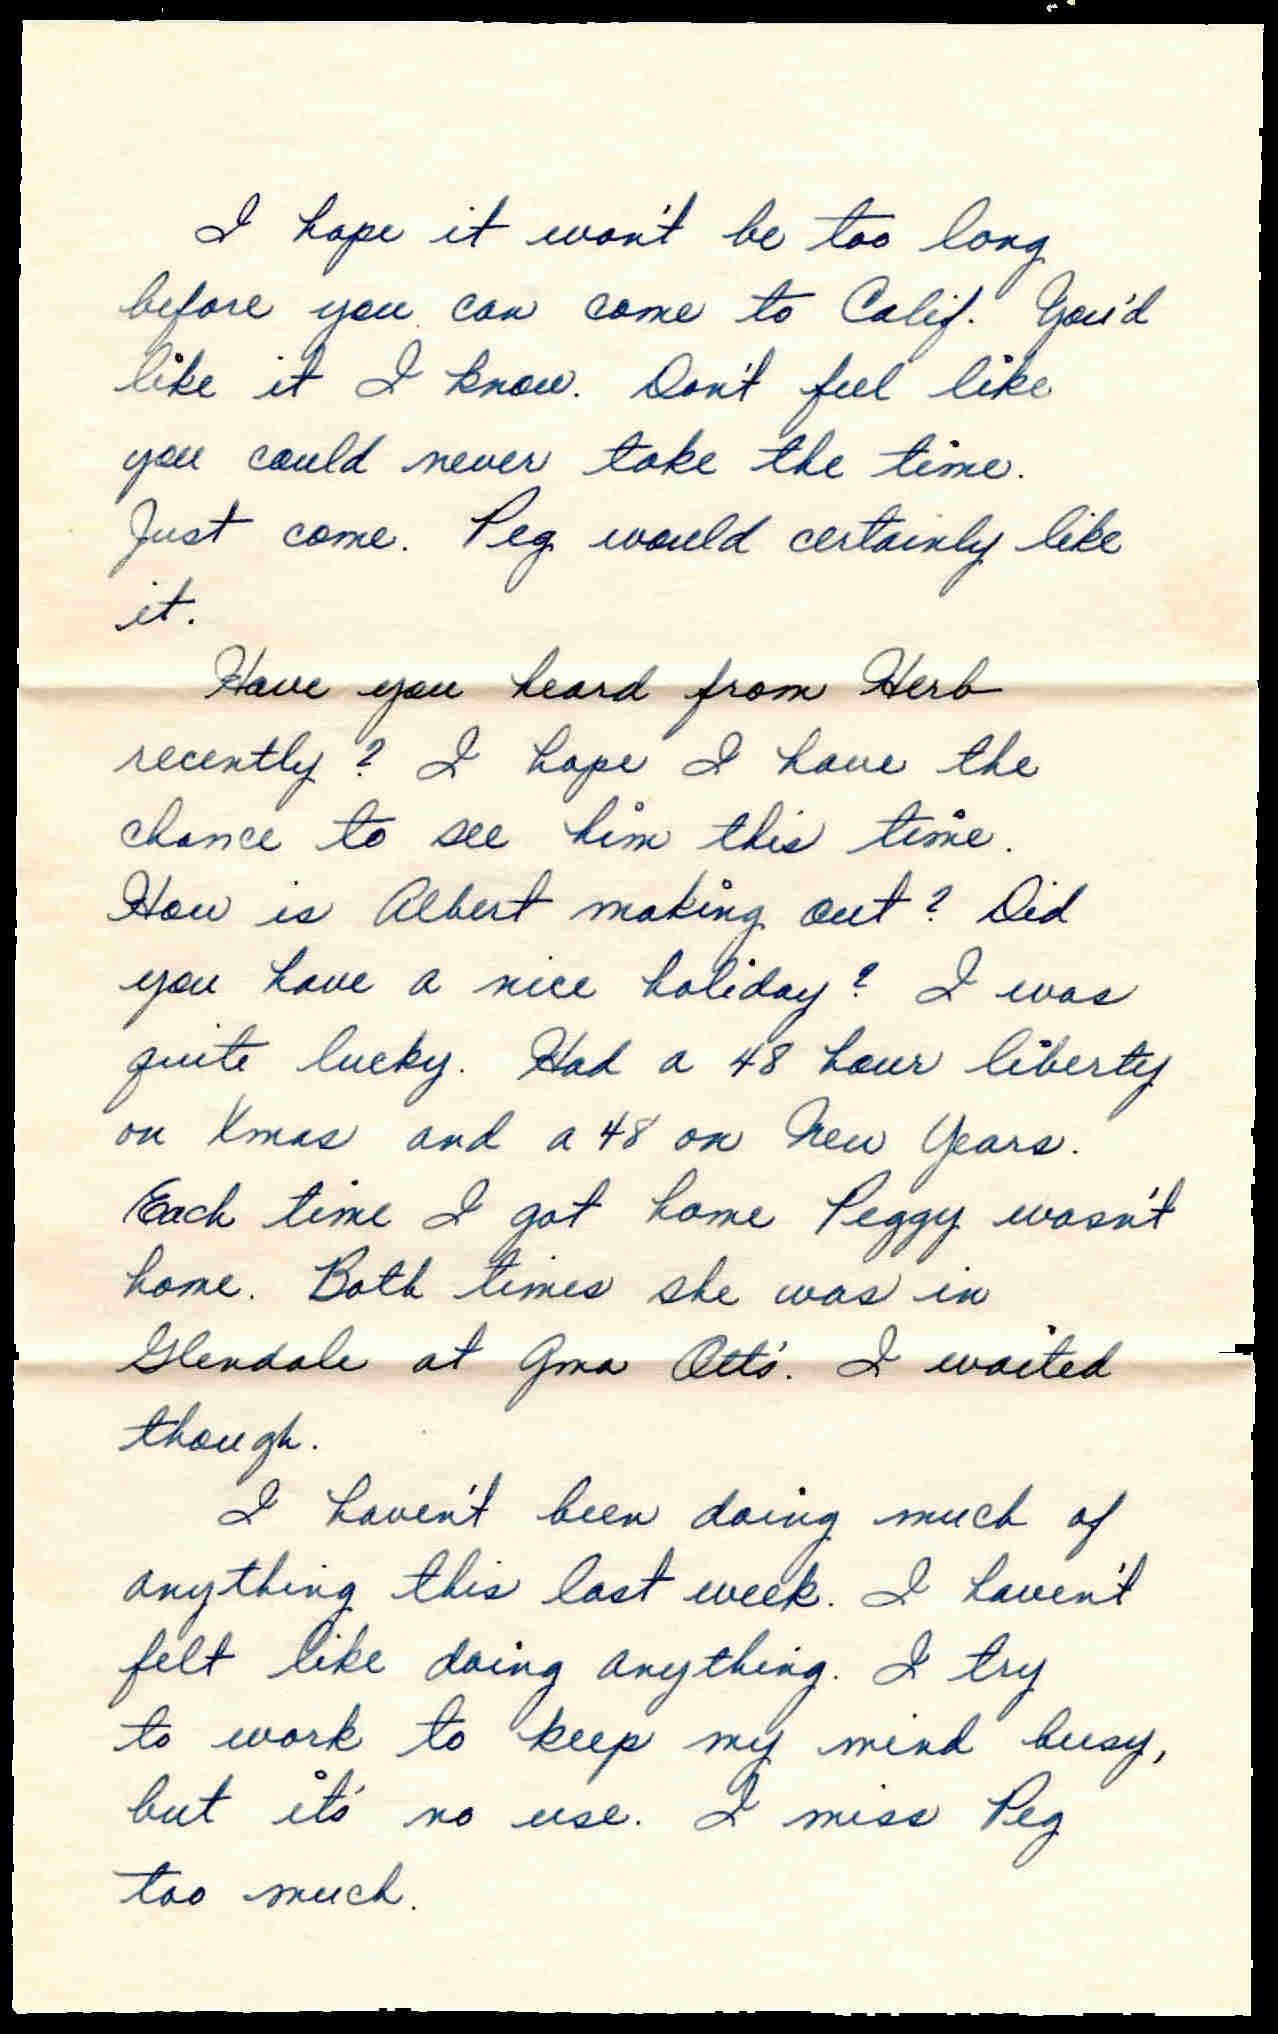 I hope it won't be too long
before you can come to Calif. You'd
like it I know. Don't feel like
you could never take the time.
Just come. Peg would certainly like
it.
Have you heard from Herb
recently? I hope I have the
chance to see him this time.
How is Albert making out? Did
you have a nice holiday? I was
quite lucky. Had a 48 hour liberty
on Xmas and a 48 on New Years.
Each time I got home Peggy wasn't
home. Both times she was in
Glendale at Gma Ott's. I waited
though.
I haven't been doing much of
anything this last week. I haven't
felt like doing anything. I try
to work to keep my mind busy,
but it's no use. I miss Peg
too much.